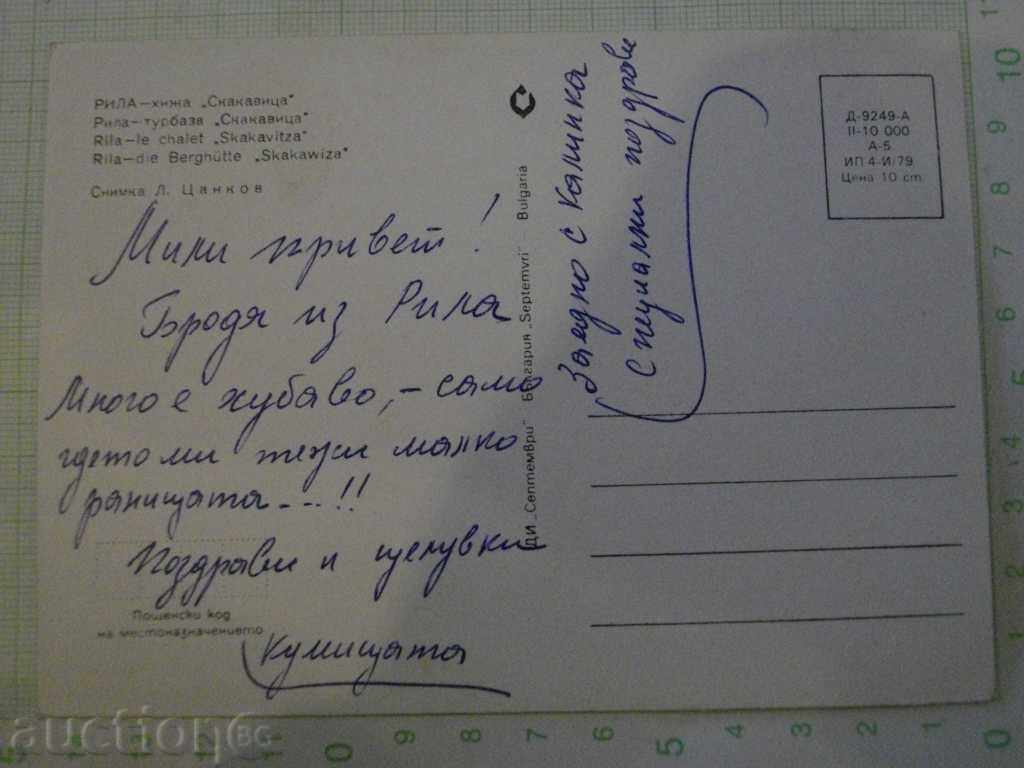 РИЛА—хижа „Скакавица"
Рила—турбаза „Скакавица"
Rila—le chalet „Skakavitza"
Rila—die Berghütte „Skakawiza"
Снимка Л. Цанков
Мили привет!
Бродя из Рила
Много е хубаво, - само
гдето ми тежи малко
раницата...!!
Поздрави и целувки
Кумицата
Пощенски код
на местоназначението
ДИ „Септември" България „Septemvri" — Bulgaria
Заедно с Калинка
Специални поздрави
Д-9249-А
II-10 000
А-5
ИП 4-И/79
Цена 10 ст.
auction BG
11
10
9
8
7
6
5
4
3
2
1
5
14
13
12
11
0
9
8
7
6
5
4
3
2
1
0